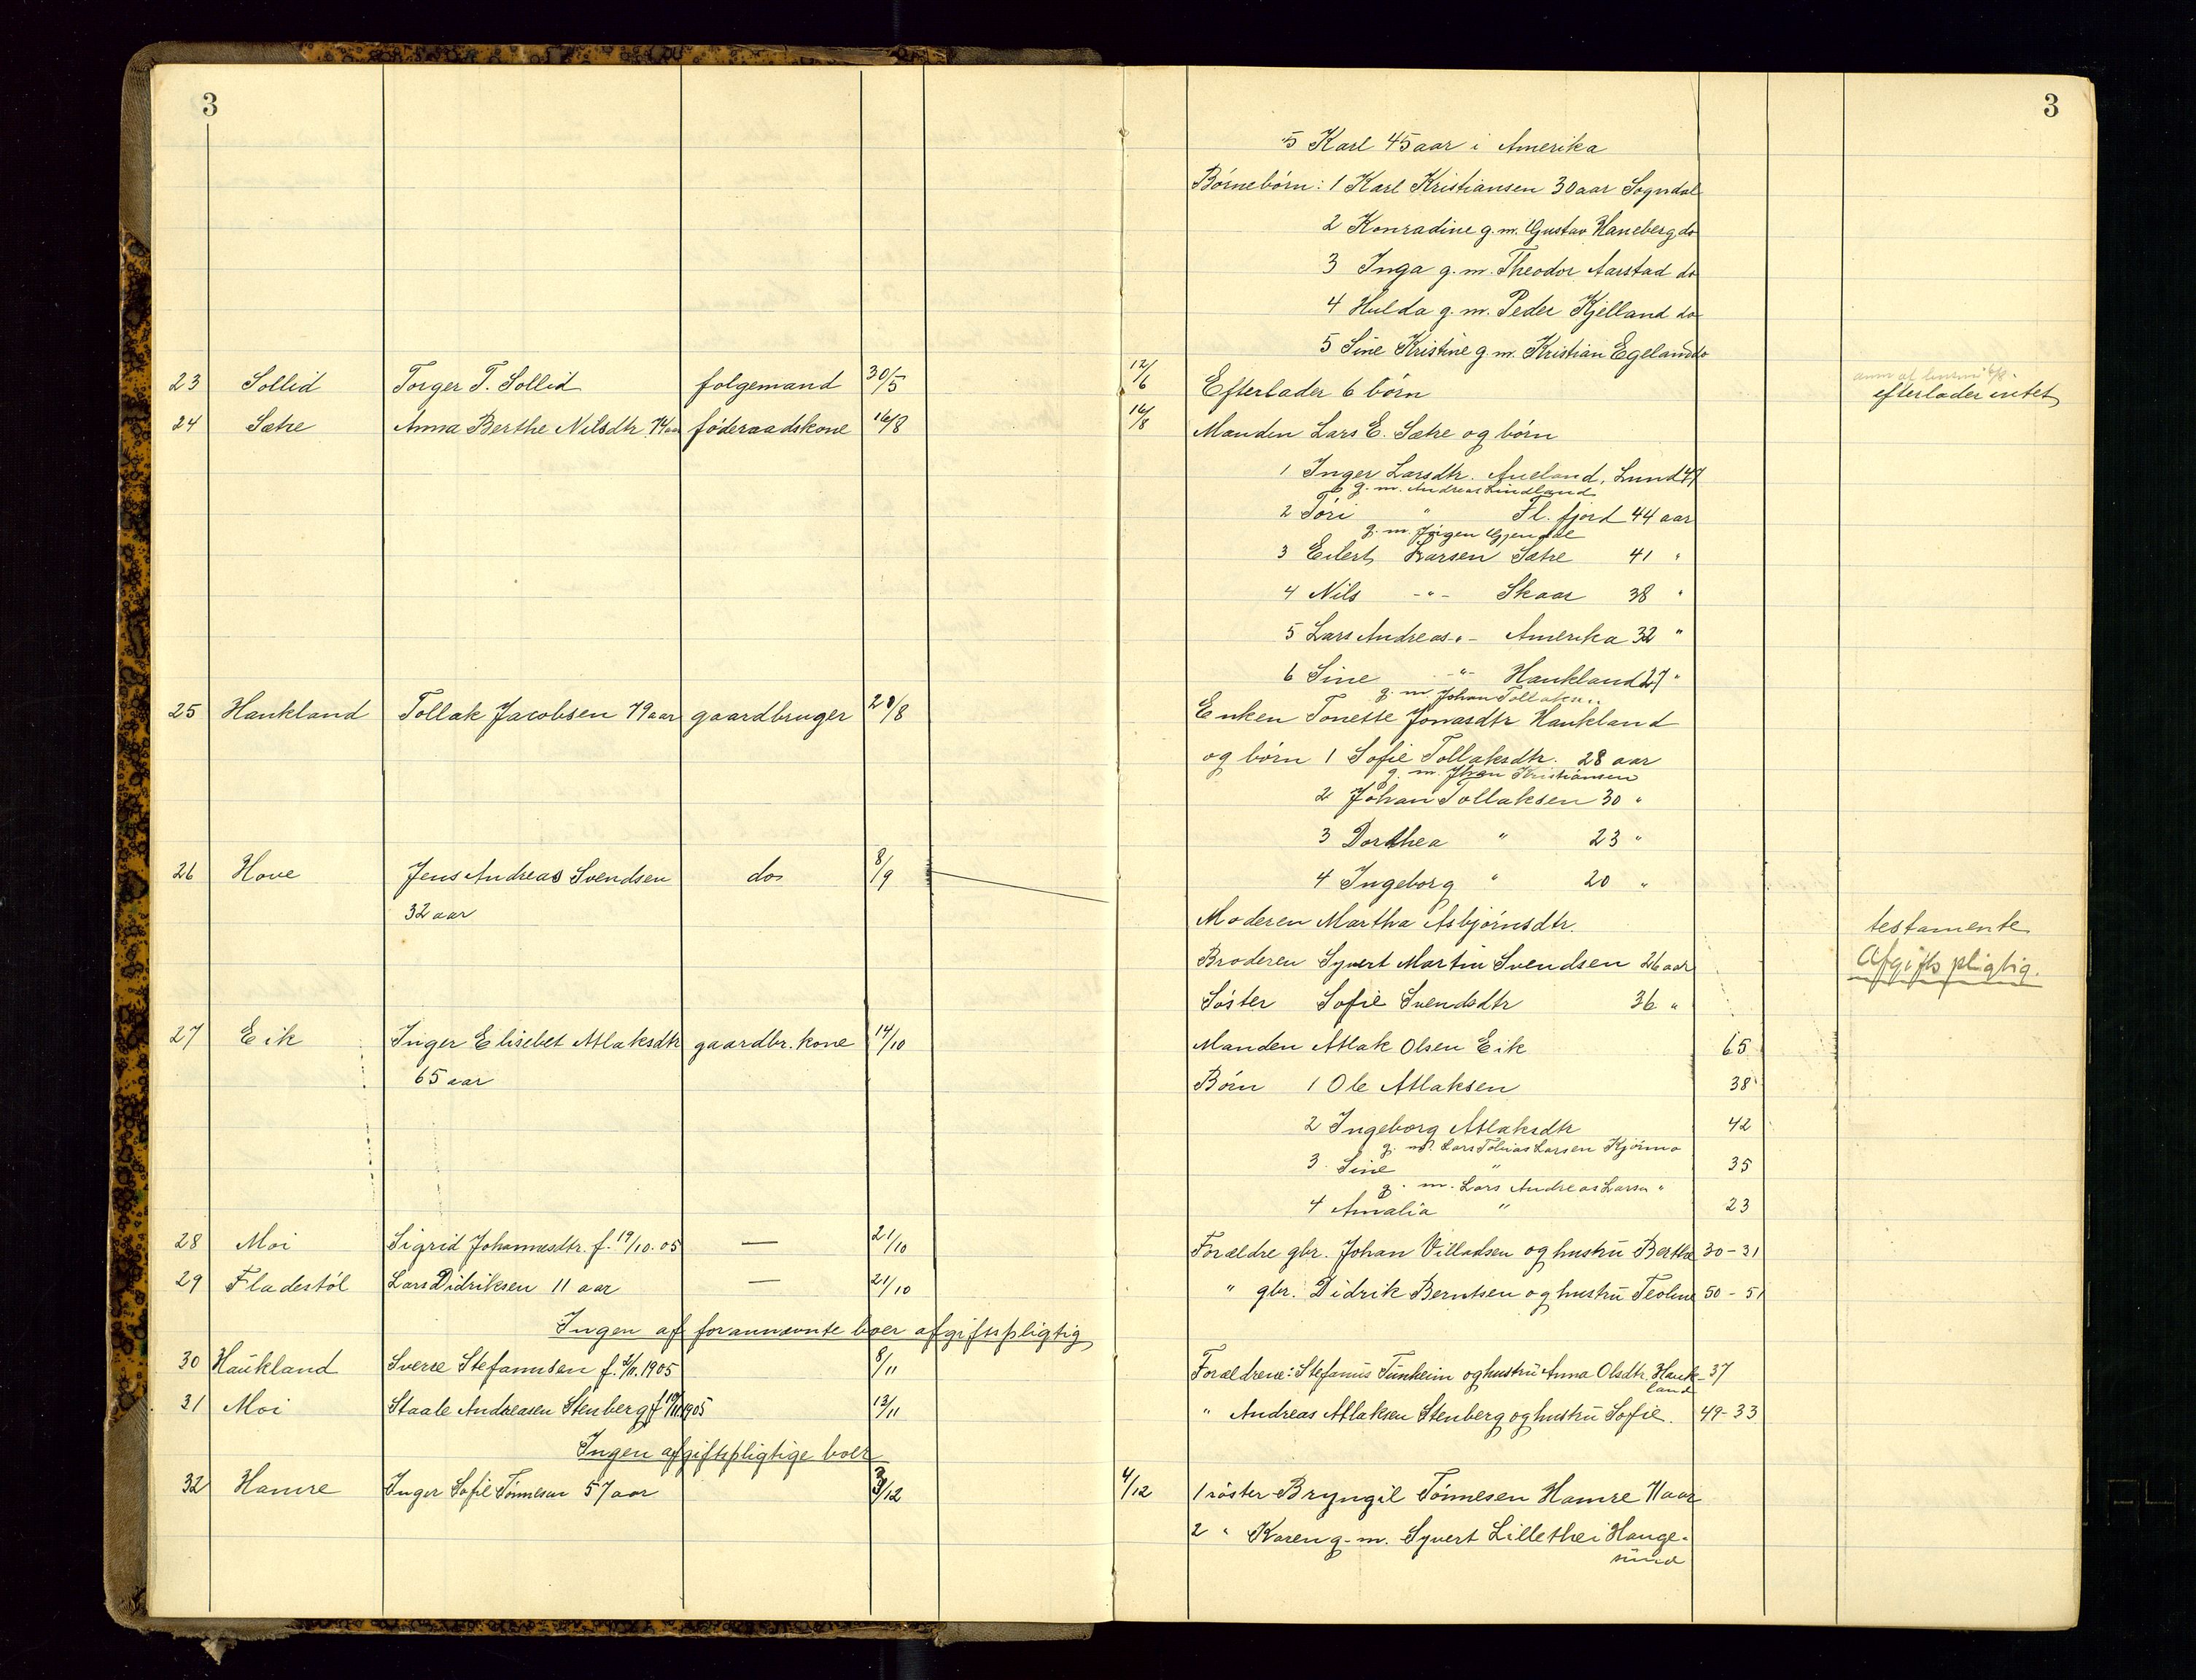 3
3
5 Karl 45 aar i Amerika
Børnebørn: 1 Karl Kristiansen 30 aar Sogndal
2 Konradine g. m. Gustav Haneberg do
3 Inga g. m. Theodor Aarstad do
4 Hulda g. m. Peder Kjelland do
5 Sine Kristine g. m. Kristian Egeland do
23 Sollid Torger T. Sollid folgemand 30/5 12/6 Efterlader 6 børn efterlader intet
24 Sætre Anna Berthe Nilsdtr. 74 aar føderaadskone 16/8 16/8 Manden Lars E. Sætre og børn
1 Inger Larsdtr. Aueland, Lund 47
g. m. Andreas Lindland
2 Töri " Fl. fjord 44 aar
g. m. Jörgen Gjendal
3 Eilert Larsen Sætre 41 "
4 Nils -"- Skaar 38 "
5 Lars Andreas -"- Amerika 32 "
6 Sine -"- Haukland 27 "
g. m. Johan Tollaksen
25 Haukland Tollak Jacobsen 79 aar gaardbruger 28/8 Enken Tonette Jonasdtr Haukland
og børn 1 Sofie Tollaksdtr. 28 aar
g. m. Johan Kristiansen
2 Johan Tollaksen 30 "
3 Dorthea " 23 "
26 Hove Jens Andreas Svendsen do 8/9 4 Ingeborg " 20 "
32 aar Moderen Martha Asbjørnsdtr. testamente
Broderen Syvert Martin Svendsen 26 aar Afgiftspligtig.
Søster Sofie Svendsdtr 36 "
27 Eik Inger Elisebet Atlaksdtr gaardbr. kone 14/10 Manden Atlak Olsen Eik 65
65 aar Børn 1 Ole Atlaksen 38
2 Ingeborg Atlaksdtr 42
g. m. Lars Tobias Larsen Kjørmo
3 Sine " 35
g. m. Lars Andreas Larsen "
4 Amalia " 23
28 Moi Sigrid Johannesdtr. f. 19/10.05 — 21/10 Forældre gbr. Johan Villadsen og hustru Berthe 30-31
29 Fladestøl Lars Didriksen 11 aar — 21/10 " gbr. Didrik Berntsen og hustru Teoline 50-51
Ingen af forannævnte boer afgiftspligtig
30 Haukland Sverre Stefanusen f. 2/11.1905 8/11 Forældrene: Stefanus Tunheim og hustru Anna Olsdtr. Hauk- 37
land
31 Moi Staale Andreasen Stenberg f 19/11 1905 13/11 " Andreas Atlaksen Stenberg og hustru Sofie. 49-33
Ingen afgiftspligtige boer
32 Hamre Inger Sofie Tønnesen 57 aar 3/12 4/12 1 søster Bryngil Tønnesen Hamre 71 aar
2 " Karen g. m. Syvert Lillethei Hauge-
sund